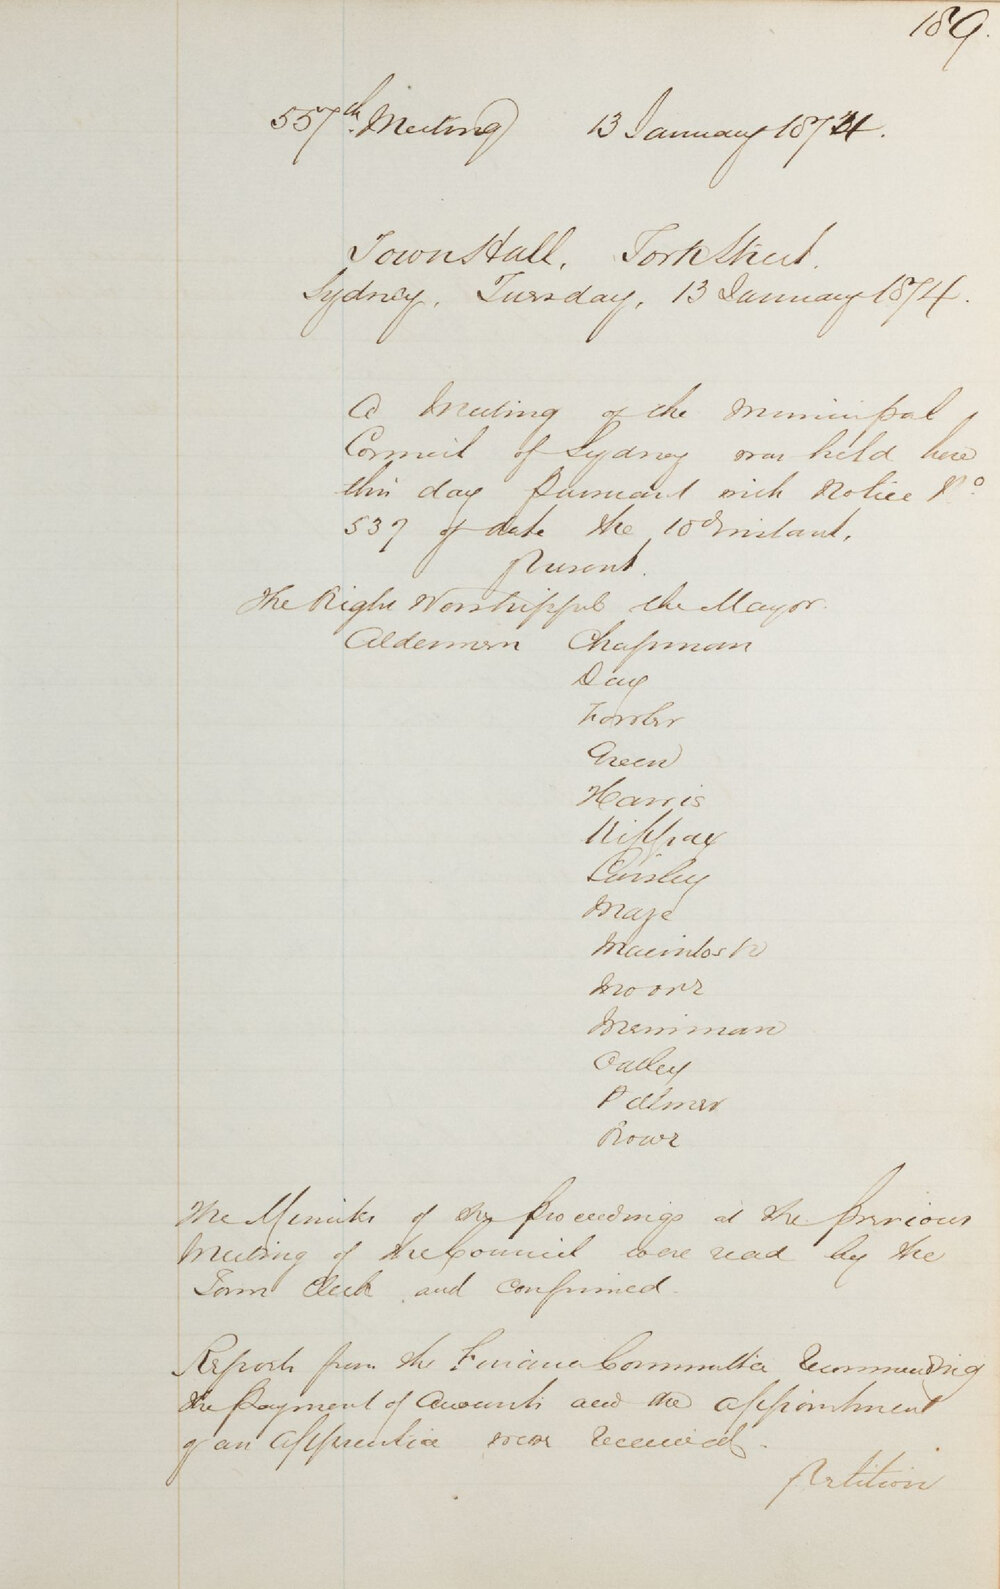 189.
557th Meeting 13 January 1874.
Town Hall, York Street.
Sydney, Tuesday, 13 January 1874.
A Meeting of the Municipal
Council of Sydney was held here
this day pursuant with Notice No.
537 of date the 10th instant.
Present.
The Right Worshipful the Mayor.
Aldermen Chapman
Day
Fowler
Green
Harris
Kippax
Linsley
Maze
Macintosh
Moore
Merriman
Oatley
Palmer
Rowe
The Minutes of the proceedings at the previous
Meeting of the Council were read by the
Town Clerk and confirmed.
Reports from the Finance Committee recommending
the payment of Accounts and the appointment
of an apprentice were received.
Petition